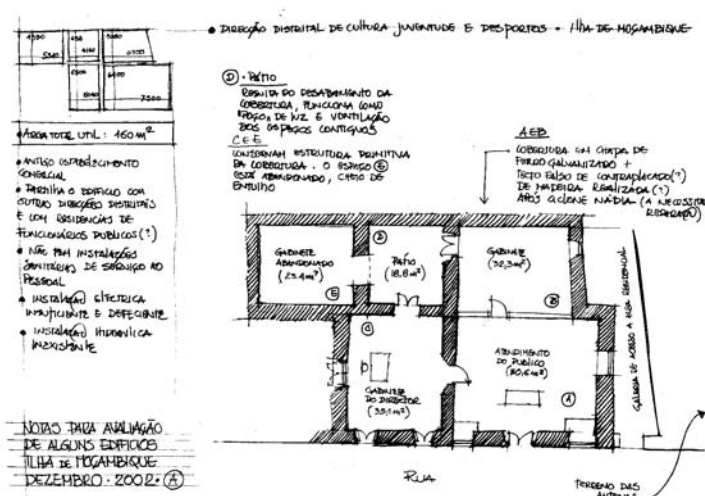 • DIRECÇÃO DISTRITAL DE CULTURA JUVENTUDE E DESPORTOS • ILHA DE MOÇAMBIQUE
• AREA TOTAL UTIL: 160 m²
• ANTIGO ESTABELECIMENTO
COMERCIAL
• PARTILHA O EDIFICIO COM
OUTRAS DIRECÇÕES DISTRITAIS
E COM RESIDENCIAS DE
FUNCIONÁRIOS PUBLICOS (?)
• NÃO TEM INSTALAÇÕES
SANITÁRIAS DE SERVIÇO AO
PESSOAL
• INSTALAÇÃO ELÉCTRICA
INSUFICIENTE E DEFICIENTE
• INSTALAÇÃO HIDRAULICA
INEXISTENTE
NOTAS PARA AVALIAÇÃO
DE ALGUNS EDIFICIOS
ILHA DE MOÇAMBIQUE
DEZEMBRO • 2002 • A
D • PÁTIO
RESULTA DO DESABAMENTO DA
COBERTURA, FUNCIONA COMO
POÇO DE LUZ E VENTILAÇÃO
DOS ESPAÇOS CONTIGUOS
C E E
CONSERVAM ESTRUTURA PRIMITIVA
DA COBERTURA. O ESPAÇO E
ESTÁ ABANDONADO, CHEIO DE
ENTULHO
A E B
COBERTURA EM CHAPA DE
FERRO GALVANIZADO +
TECTO FALSO DE CONTRAPLACADO (?)
DE MADEIRA REALIZADA (?)
APÓS CICLONE NÁDIA (A NECESSITAR
REPARAÇÃO)
GABINETE
ABANDONADO
(23.4 m²)
E
D
PATIO
(18,8 m²)
GABINETE
(32,3 m²)
B
C
GABINETE
DO DIRECTOR
(35,1 m²)
ATENDIMENTO
DO PUBLICO
(50,6 m²)
A
GALERIA DE ACESSO A AREA RESIDENCIAL
RUA
TERRENO DAS
ANTENAS